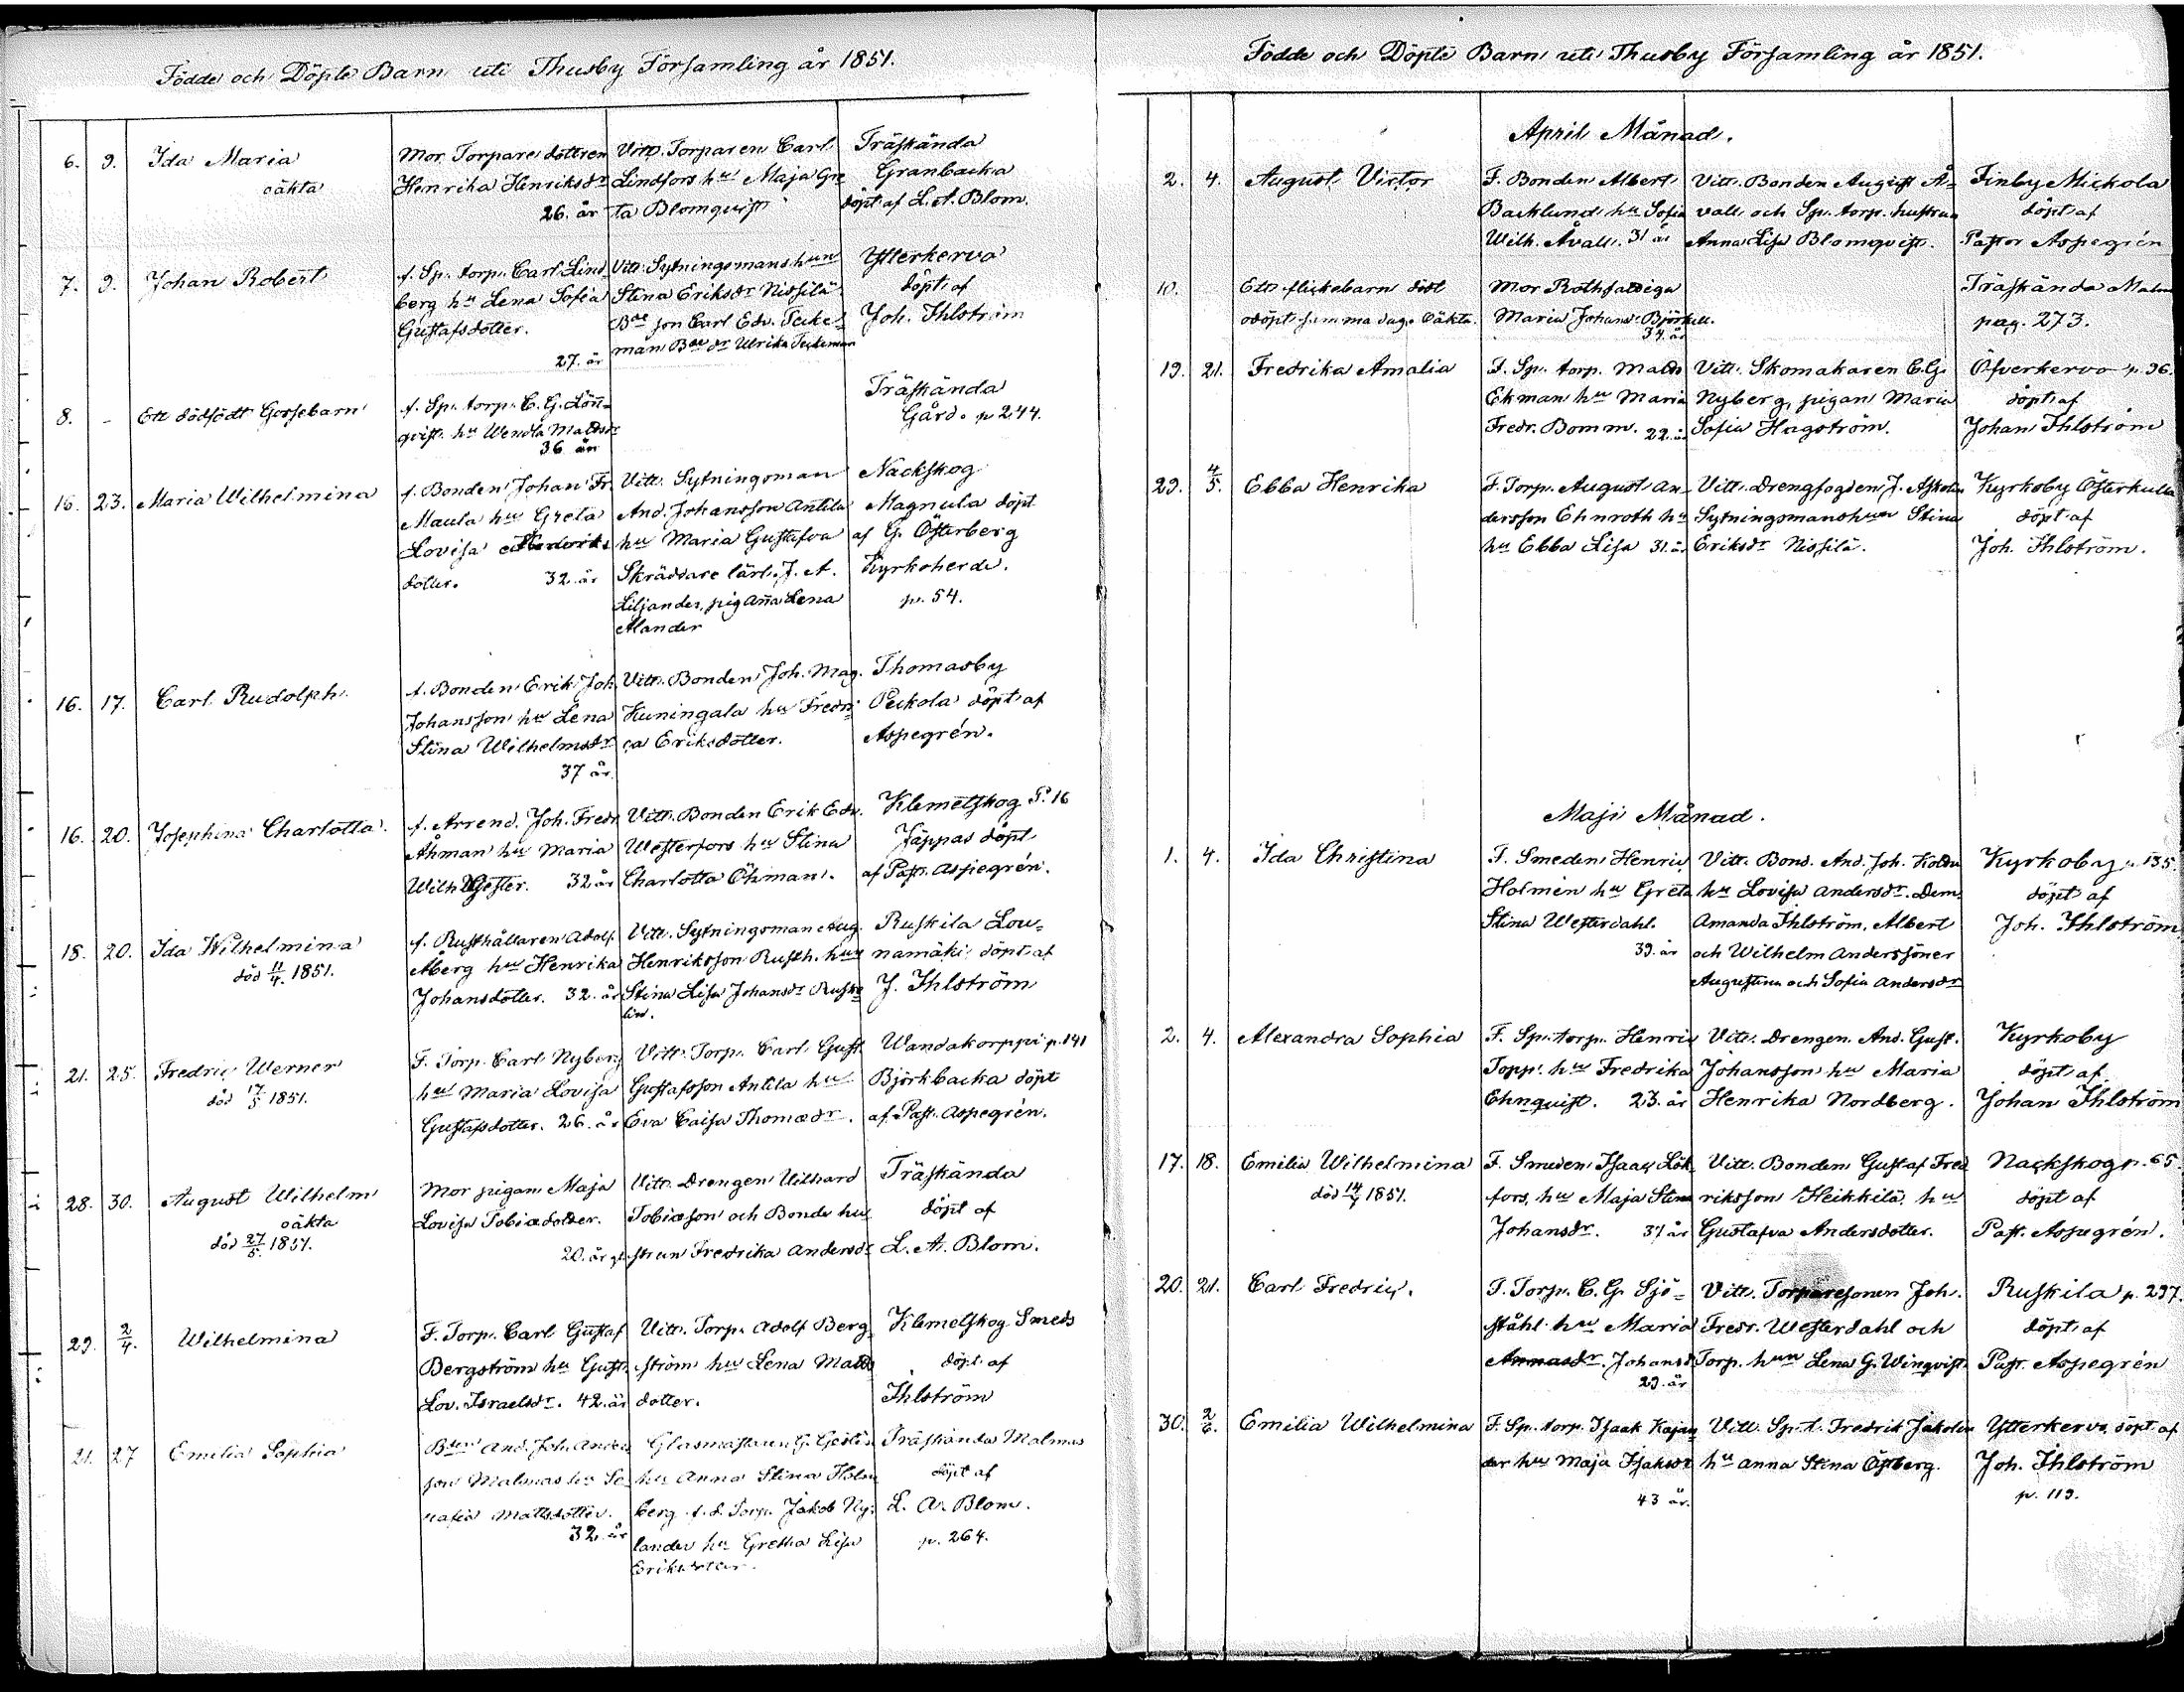 Födde och Döpte Barn uti Thusby Församling år 1851.
6. 9. Ida Maria
oäkta
Mor. Torpare dottren
Henrika Henriksdr
26. år
Vittn. Torparen Carl
Lindfors hu Maja Gre
ta Blomqvist
Träskända
Granbacka
döpt af L. A. Blom.
7. 9. Johan Robert
f. Sp. torp. Carl Lind
berg hu Lena Sofia
Gustafsdotter.
27. år
Vittn. Sytningsmans hun
Stina Eriksdr Nissilä
Bde son Carl Edv. Tecke
man Bde dr Ulrika Teckeman
Ytterkervo
döpt af
Joh. Ihlström
8. - Ett dödfödt Gossebarn
f. Sp. torp. C. G. Lönn
qvist hu Wendla Mattsdr
36 år
Träskända
Gård. p 244.
16. 23. Maria Wilhelmina
f. Bonden Johan Fr.
Maula hu Greta
Lovisa
dotter. 32 år
Vittn. Sytningsman
And. Johansson Antila
hu Maria Gustafva
Skräddare lärl. J. A.
Liljander, pig Anna Lena
Alander
Nackskog
Magnula döpt
af G. Österberg
Kyrkoherde.
p. 54.
16. 17. Carl Rudolph
f. Bonden Erik Joh.
Johansson hu Lena
Stina Wilhelmsdr
37 år.
Vittn. Bonden Joh. Mag.
Kuningala hu Fredri
ca Eriksdotter.
Thomasby
Peckola döpt af
Aspegrén.
16. 20. Josephina Charlotta.
f. Arrend. Joh. Fredr
Åhman hu Maria
Wilh. 32 år
Vittn. Bonden Erik Edv.
Westerfors hu Stina
Charlotta Öhman.
Klemetskog P. 16
Jäppas döpt
af Past. Aspegrén.
18. 20. Ida Wilhelmina
död 11/4. 1851.
f. Rusthållaren Adolf
Åberg hu Henrika
Johansdotter. 32. år
Vittn. Sytningsman Aug.
Henriksson Rusth. hun
Stina Lisa Johansdr Ruske
lin.
Ruskila Lou=
namäki döpt af
J. Ihlström
21. 25. Fredric Werner
död 17/5 1851.
F. Torp. Carl Nyberg
hu Maria Lovisa
Gustafsdotter. 26. år
Vittn. Torp. Carl Gust.
Gustafsson Antila hu
Eva Caisa Thomædr.
Wandakorppi p. 141
Björkbacka döpt
af Past. Aspegrén.
28. 30. August Wilhelm
oäkta
död 27/5 1851.
Mor pigan Maja
Lovisa Tobiædotter.
20. år gl
Vittn. Drengen Wilhard
Tobiæson och Bonde hu
strun Fredrika Andersdr
Träskända
döpt af
L. A. Blom.
29. 2/4. Wilhelmina
F. Torp. Carl Gustaf
Bergström hu Gust.
Lov. Israelsdr. 42. år
Vittn. Torp. Adolf Berg
ström hu Lena Matts
dotter.
Klemetskog Smeds
döpt af
Ihlström
21. 27 Emelia Sophia
And. Joh. Anders
son Malmas hu Se
rafia Mattsdotter.
32. år
hu Anna Stina Holm
berg. f. d. Torp. Jakob Ny
lander hu Gretha Lisa
Eriksdotter.
Träskända Malmas
döpt af
L. A. Blom.
p. 264.
Födde och Döpte Barn uti Thusby Församling år 1851.
April Månad.
2. 4. August Victor
F. Bonden Albert
Backlund hu Sofia
Wilh. Åvall. 31 år
Vittn. Bonden August Å=
vall och Sp. torp. hustrun
Anna Lisa Blomqvist.
Finby Mickola
döpt af
Pastor Aspegrén
10. Ett flickebarn död
odöpt samma dag. Oäkta.
Mor Rothfattiga
Maria Johansdr Björkell.
34. år
Träskända Malm
pag. 273.
19. 21. Fredrika Amalia
F. Sp. torp. Matts
Ekman hu Maria
Fredr. Bomm. 22. år
Vittn. Skomakaren C. G.
Nyberg, pigan Maria
Sofia Hagström.
Öfverkervo p. 96.
döpt af
Johan Ihlström
29. 4/5. Ebba Henrika
F. Torp. August An
dersson Ehnroth hu
hu Ebba Lisa 31. år
Vittn. Drengfogden J. Askolin
Sytningsmanshun Stina
Eriksdr Nissilä.
Kyrkoby Österkulla
döpt af
Joh. Ihlström.
Maji Månad.
1. 4. Ida Christina
F. Smeden Henric
Holmén hu Greta
Stina Westerdahl.
39. år
Vittn. Bond. And. Joh.
hu Lovisa Andersdr. Dem.
Amanda Ihlström, Albert
och Wilhelm Anderssöner
Augustina och Sofia Andersdr
Kyrkoby p. 135.
döpt af
Joh. Ihlström
2. 4. Alexandra Sophia
F. Sp. torp. Henric
Topp. hu Fredrika
Ehnquist. 23. år
Vittn. Drengen And. Gust.
Johansson hu Maria
Henrika Nordberg.
Kyrkoby
döpt af
Johan Ihlström
17. 18. Emilia Wilhelmina
död 14/7 1851.
F. Smeden Isaac Löf
fors, hu Maja Stina
Johansdr. 37 år
Vittn. Bonden Gustaf Fred
riksson Heikkilä hu
Gustafva Andersdotter.
Nackskog p. 65
döpt af
Past. Aspegrén.
20. 21. Carl Fredric.
F. Torp. C. G. Sjö=
ståhl hu Maria
Annasdr. Johansd
29. år
Vittn. Torparesonen Joh.
Fredr. Westerdahl och
Torp. hun Lena G. Winqvist.
Ruskila p. 237.
döpt af
Past. Aspegrén
30. 2/6. Emilia Wilhelmina
F. Sp. torp. Isaak Kajan
der hu Maja Isaksdr
43 år.
Vittn. Sp. t. Fredrik Jakolin
hu Anna Stina Öfberg.
Ytterkervo döpt af
Joh. Ihlström
p. 119.